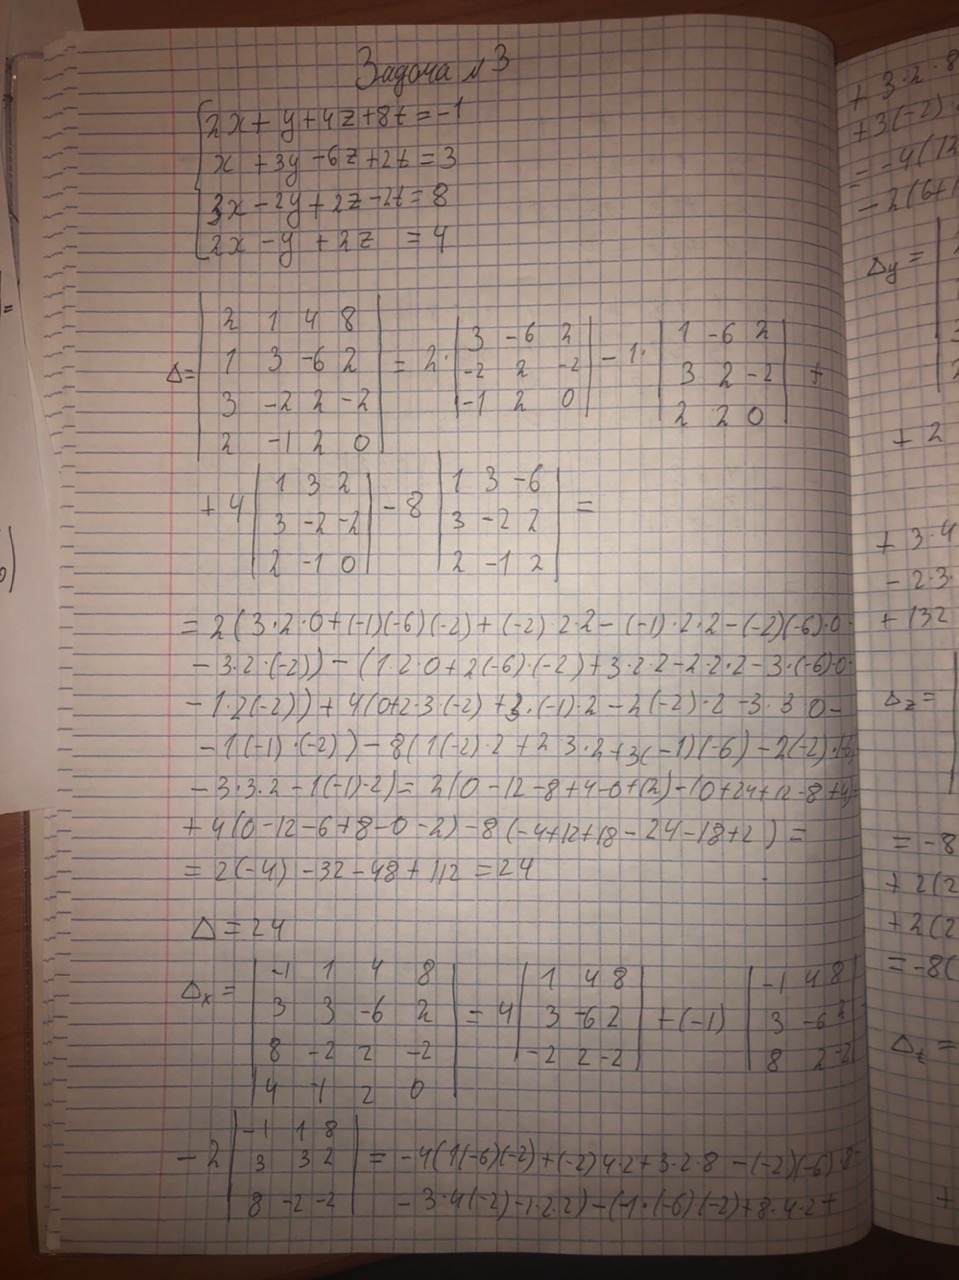 Задача №3
2x + y + 4z + 8t = -1
x + 3y - 6z + 2t = 3
3x - 2y + 2z - 2t = 8
2x - y + 2z = 4
Δ = | 2 1 4 8 | = 2 · | 3 -6 2 | - 1 · | 1 -6 2 | +
| 1 3 -6 2 | | -2 2 -2 | | 3 2 -2 |
| 3 -2 2 -2 | | -1 2 0 | | 2 2 0 |
| 2 -1 2 0 |
+ 4 | 1 3 2 | - 8 | 1 3 -6 | =
| 3 -2 -2 | | 3 -2 2 |
| 2 -1 0 | | 2 -1 2 |
= 2(3·2·0 + (-1)(-6)(-2) + (-2)·2·2 - (-1)·2·2 - (-2)(-6)·0 -
- 3·2·(-2)) - (1·2·0 + 2(-6)·(-2) + 3·2·2 - 2·2·2 - 3·(-6)·0 -
- 1·2(-2)) + 4(0+2·3·(-2) + 3·(-1)·2 - 2(-2)·2 - 3·3·0 -
- 1(-1)·(-2)) - 8(1(-2)·2 + 2·3·2 + 3(-1)(-6) - 2(-2)·(-6)
- 3·3·2 - 1(-1)·2) = 2(0 - 12 - 8 + 4 - 0 + 12) - (0 + 24 + 12 - 8 + 4) +
+ 4(0 - 12 - 6 + 8 - 0 - 2) - 8(-4 + 12 + 18 - 24 - 18 + 2) =
= 2(-4) - 32 - 48 + 112 = 24
Δ = 24
Δx = | -1 1 4 8 | = 4 | 1 4 8 | + (-1) | -1 4 8 |
| 3 3 -6 2 | | 3 -6 2 | | 3 -6 2 |
| 8 -2 2 -2 | | -2 2 -2 | | 8 2 -2 |
| 4 -1 2 0 |
- 2 | -1 1 8 | = -4(1(-6)(-2) + (-2)4·2 + 3·2·8 - (-2)(-6)·8 -
| 3 3 2 |
| 8 -2 -2 | - 3·4(-2) - 1·2·2) - (-1·(-6)(-2) + 8·4·2 +
+ 3·2·8
+ 3(-2)
= -4(12
- 2(6+
Δy =
+ 2
+ 3·4
- 2·3·
+ (32
Δz =
= -8
+ 2(2
+ 2(2
= -8(
Δt =
+